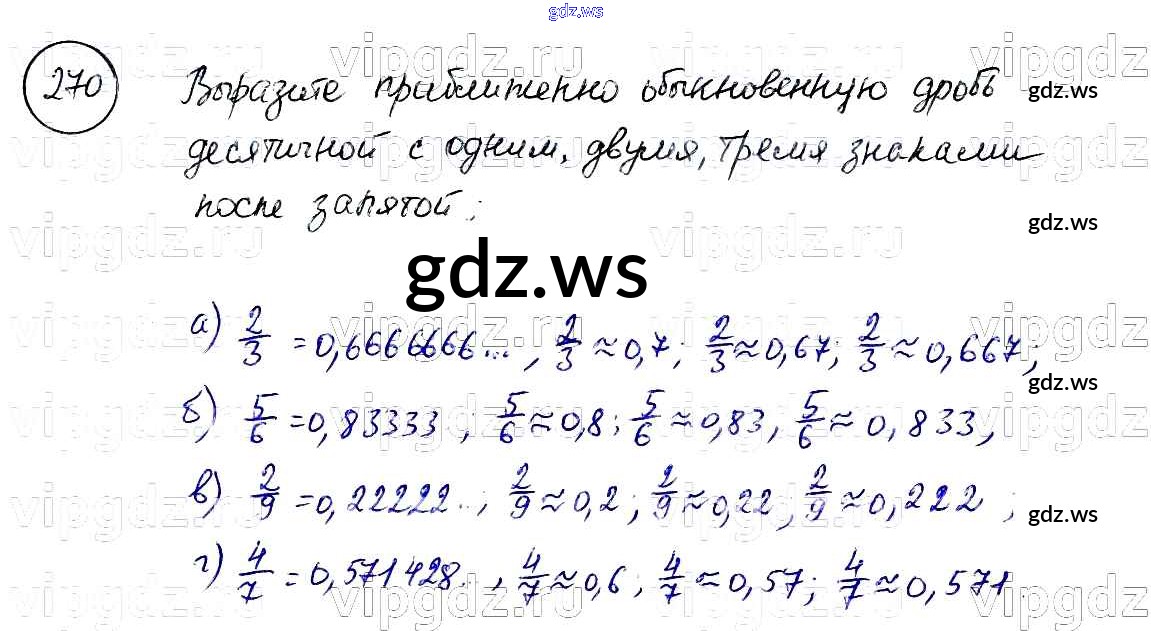 gdz.ws
270 Выразите приближенно обыкновенную дробь
gdz.ws
десятичной с одним, двумя, тремя знаками
после запятой:
gdz.ws
gdz.ws
а) 2/3 = 0,6666666..., 2/3 ≈ 0,7; 2/3 ≈ 0,67; 2/3 ≈ 0,667;
gdz.ws
б) 5/6 = 0,83333, 5/6 ≈ 0,8; 5/6 ≈ 0,83, 5/6 ≈ 0,833,
в) 2/9 = 0,22222.., 2/9 ≈ 0,2; 2/9 ≈ 0,22, 2/9 ≈ 0,222;
gdz.ws
г) 4/7 = 0,571428.., 4/7 ≈ 0,6; 4/7 ≈ 0,57; 4/7 ≈ 0,571
vipgdz.ru